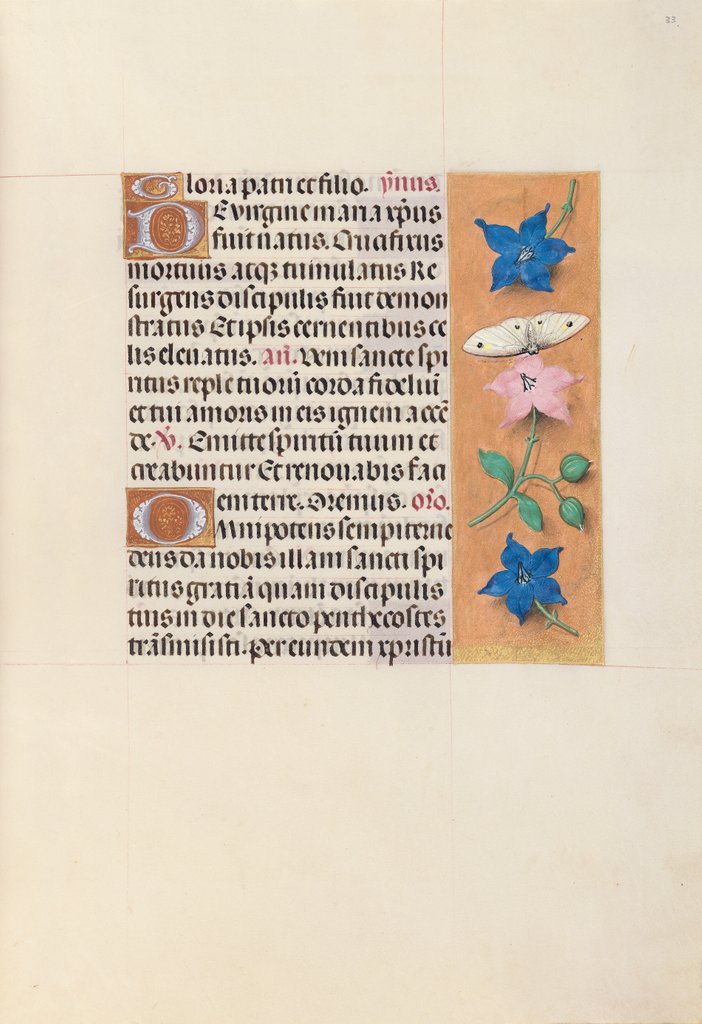 33
Gloria patri et filio. ẏmus.
De virgine maria xp̄us
fuit natus. Crucifixus
mortuus atqꝫ tumulatus Re
surgens discipulis fuit demon
stratus Et ipsis cernentibus ce
lis eleuatus. an̄. Veni sancte spi
ritus reple tuorū corda fideliū
et tui amoris in eis ignem accē
de. V̄. Emitte spiritū tuum et
creabuntur Et renouabis faci
em terre. Oremus. oro.
Omnipotens sempiterne
deus da nobis illam sancti spi
ritus gratiā quam discipulis
tuis in die sancto penthecostes
trāsmisisti. Per eundem xpristū